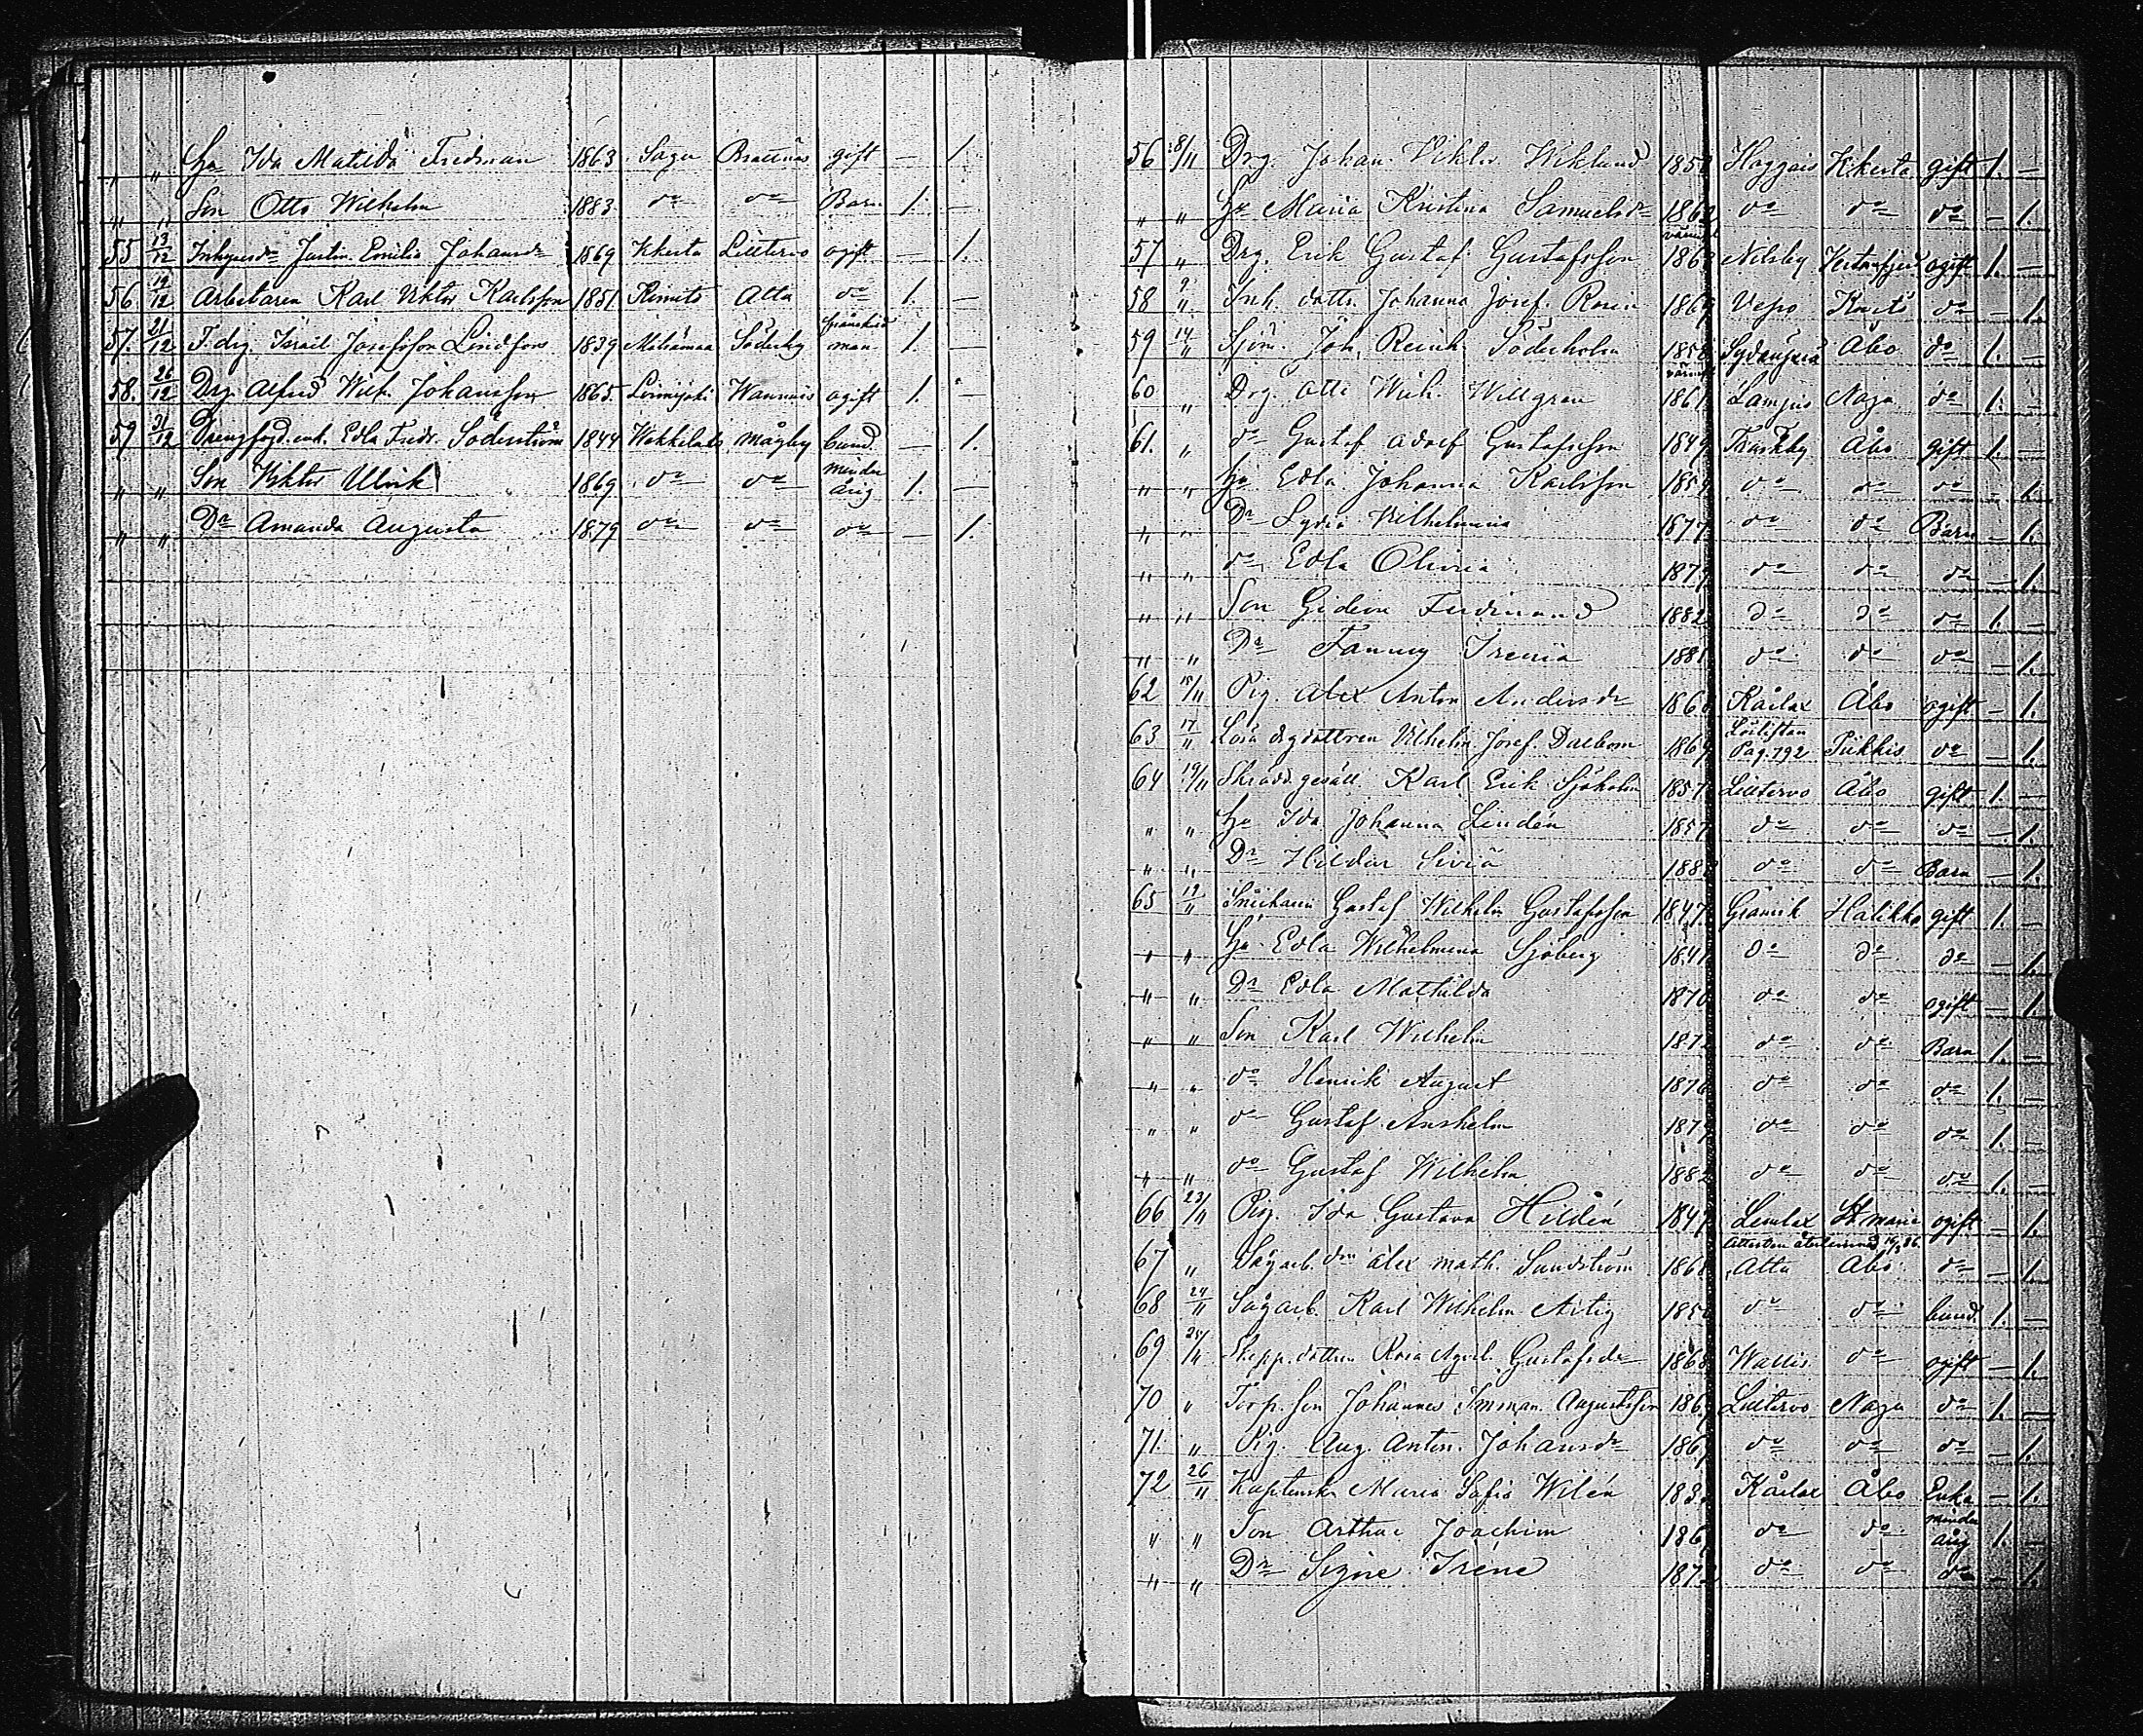 " " Hu Ida Matilda Fredman 1863 Sagu Brattnäs gift — 1.
" " Son Otto Wilhelm 1883 do do Barn 1. —
55 13/12 Inhysesdr Justin. Emilia Johansdr 1869 Kkerta Lietervo ogift — 1.
56 19/12 Arbetaren Karl Viktor Karlsson 1851 Rimito Atta do 1. —
57. 21/12 F. drg. Israil Josefsson Lindfors 1839 Söderby frånskild man 1. —
58. 26/12 Drg. Alfred Wilh. Johansson 1865. ogift 1. —
59 31/12 enk. Edla Fredr. Söderström 1844 Mågby bund. — 1.
" " Son Viktor Ulrik 1869 do do minder årig 1. —
" " Dr Amanda Augusta 1879 do do do — 1.
56 8/11 Drg. Johan Viktor Wiklund Haggais Kkerta gift 1. —
" " Hu Maria Kristina Samuelsdr 1862 do do do — 1.
57 " Drg. Erik Gustaf Gustafsson Nilsby ogift 1. —
58 9/" Inh. dottr. Johanna Josef. Rosin 1869 Vepo Kustö do — 1.
59 14/11 Sjöm. Joh. Reinh. Söderholm 1858 Åbo do 1. —
60 " Drg. Otto Wilh. Willgren 1861 Lampis Nagu do 1. —
61. " do Gustaf Adolf Gustafsson 1849 Träskby Åbo gift 1. —
" " Hu Edla Johanna Karlsson 1859 do do do — 1.
" " Dr Lydia Vilhelmina 1877 do do Barn — 1.
" " do Edla Olivia 1879 do do do — 1.
" " Son Gideon Ferdinand 1882 do do do 1. —
" " Dr Fanny Irenia 1881 do do do — 1.
62 15/11 Pig. Alex Anton Andersdr Kårlax Åbo ogift — 1.
63 17/11 Lösa drg dottren Vilhelm. Josef. Dalbom 1869 Löslistan Pag. 792 Piikkis do — 1.
64 19/11 Skrädd. gesäll. Karl Erik Sjöholm 1857 Lietervo Åbo gift 1. —
" " Hu Ida Johanna Lindén 1857 do do do — 1.
" " Dr Hildur Siviä 1882 do do Barn — 1.
65 19/11 Snickaren Gustaf Wilhelm Gustafsson 1847 Granvik Halikko gift 1. —
" " Hu Edla Wilhelmina Sjöberg 1841 do do do — 1.
" " Dr Edla Mathilda 1870 do do ogift — 1.
" " Son Karl Wilhelm 1872 do do Barn 1. —
" " do Henrik August 1876 do do do 1. —
" " do Gustaf Anshelm 1879 do do do 1. —
" " do Gustaf Wilhelm 1882 do do do 1. —
66 23/11 Pig. Ida Gustava Hildén 1847 Lemlax St. Marie ogift — 1.
67 " Sågarb. dr Alex. Math. Sundström 1868 Attesten återlemnad Atta Åbo do — 1.
68 24/11 Sågarb. Karl Wilhelm Artig do do bund. 1. —
69 25/11 Skepp. dottren Rosa Gustafsdr 1868 Wallis do ogift — 1.
70 " Torp. son Johannes Imman. Augustsson Lietervo Nagu do 1. —
71. " Pig. Aug. Anton. Johansdr do do do — 1.
72 26/11 Kaptenska Maria Sofia Wilén Kårlax Åbo Enka — 1.
" " Son Arthur Joachim do do minder årig 1. —
" " Dr Signe Irène 1872 do do do — 1.